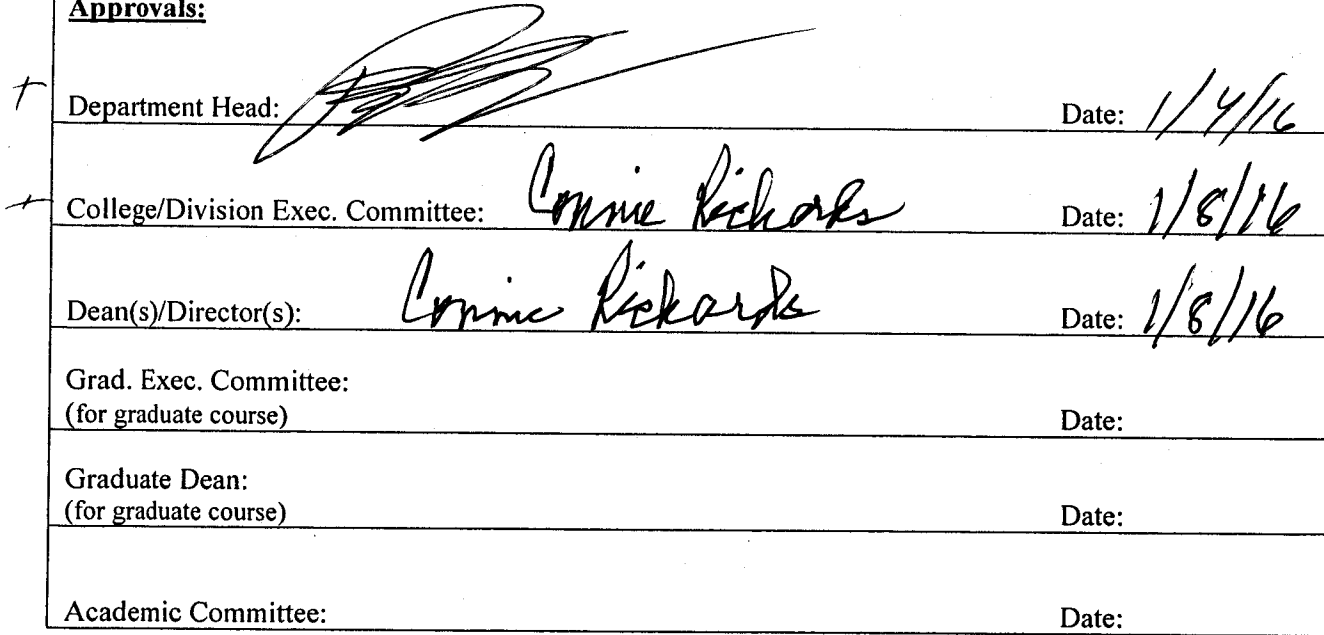 Approvals:
Department Head: Date: 1/4/16
College/Division Exec. Committee: Connie Richards Date: 1/8/16
Dean(s)/Director(s): Connie Richards Date: 1/8/16
Grad. Exec. Committee:
(for graduate course) Date:
Graduate Dean:
(for graduate course) Date:
Academic Committee: Date: